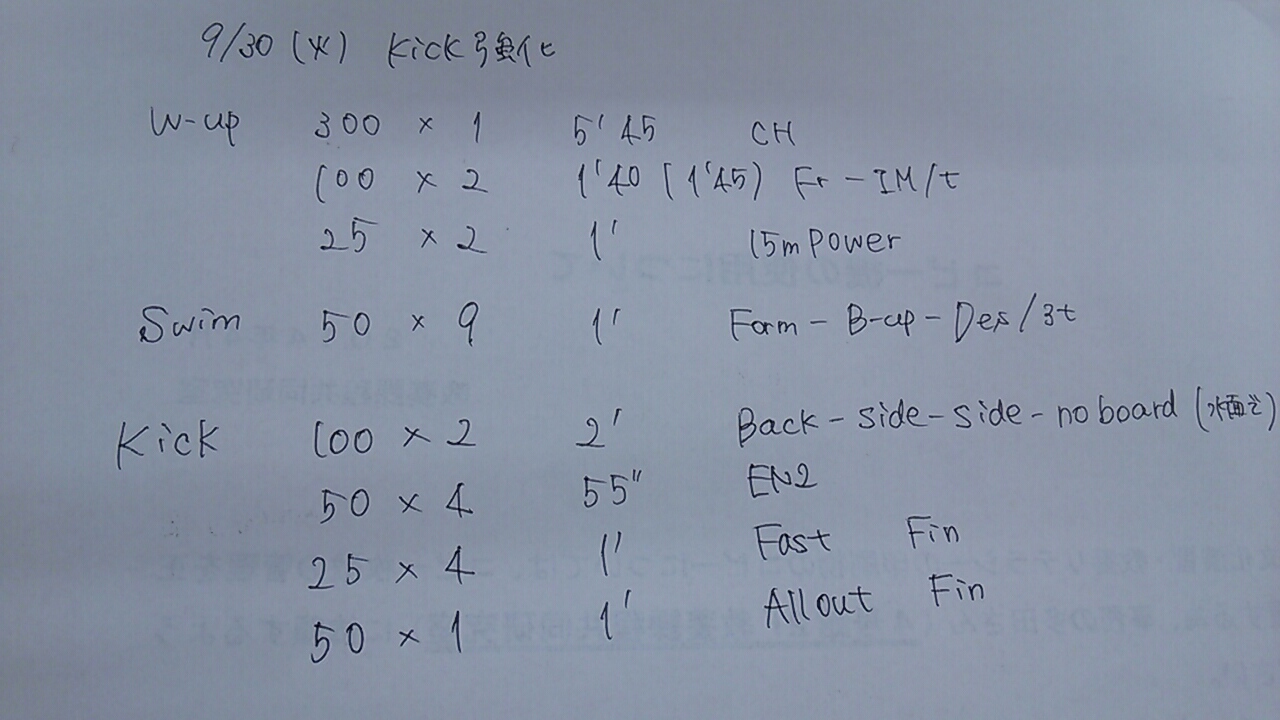 9/30 (火) Kick強化
W-up 300 × 1 5'45 CH
100 × 2 1'40 (1'45) Fr-IM/t
25 × 2 1' 15m Power
Swim 50 × 9 1' Form-B-up-Des/3t
Kick 100 × 2 2' Back-side-side-no board (水面で)
50 × 4 55" EN2
25 × 4 1' Fast Fin
50 × 1 1' All out Fin
コピー機の使用について